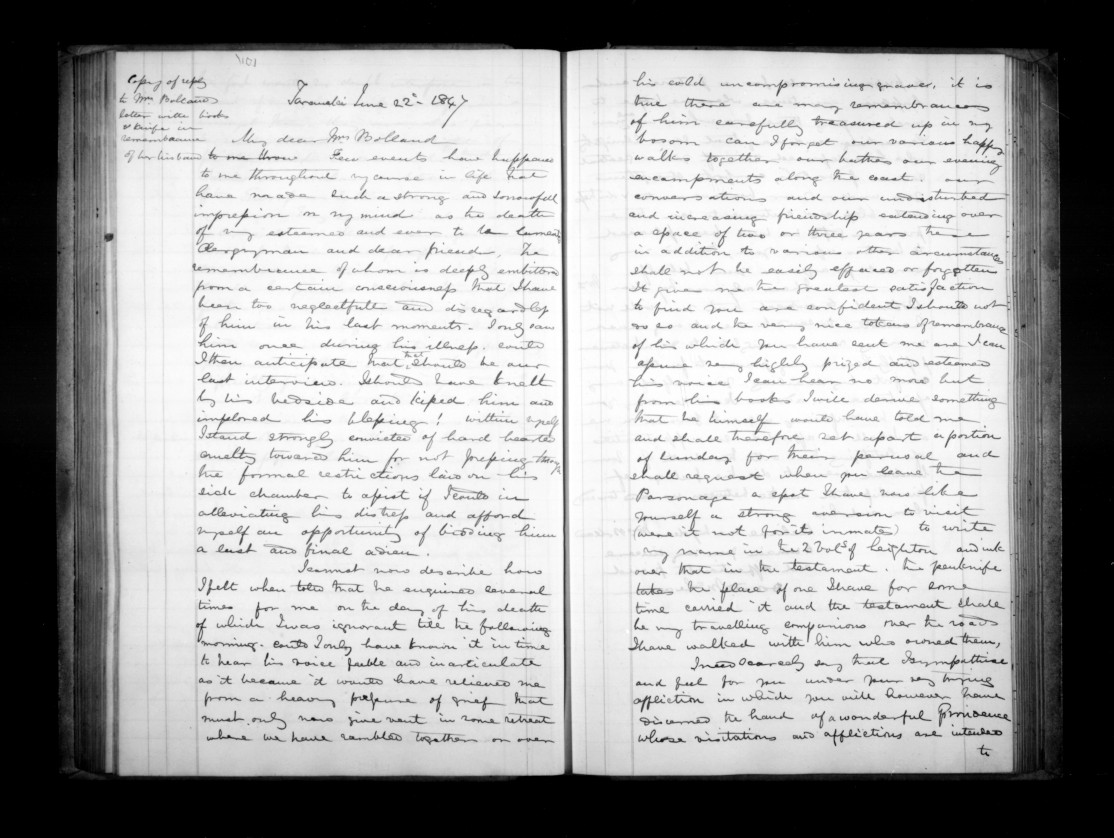 101
Copy of reply
to Mrs Bolland's
letter with books
& knife in
remembrance
of her husband
Taranaki June 22nd 1847
My dear Mrs Bolland
Few events have happened
to me throughout my course in life that
have made such a strong and sorrowfull
impression on my mind as the death
of my esteemed and ever to be lamented
Clergyman and dear friend, the
remembrance of whom is deeply embittered
from a certain consciousness that I have
been too neglectfull and disregardless
of him in his last moments. I only saw
him once during his illness. could
I then anticipate that that should be our
last interview. I should have knelt
by his bedside and kissed him and
implored his blessing! within myself
I stand strongly convicted of hard hearted
cruelty towards him for not pressing through
the formal restrictions laid on his
sick chamber to assist if I could in
alleviating his distress and afford
myself an opportunity of bidding him
a last and final adieu.
I cannot now describe how
I felt when told that he enquired several
times for me on the day of his death
of which I was ignorant till the following
morning. could I only have known it in time
to hear his voice feeble and inarticulate
as it became it would have relieved me
from a heavy pressure of grief that
must only now give vent in some retreat
where we have rambled together or over
his cold uncompromising grave, it is
true there are many remembrances
of him carefully treasured up in my
bosom can I forget our various happy
walks together our bathes our evening
encampments along the coast. our
conversations and our undisturbed
and increasing friendship extending over
a space of two or three years these
in addition to various other circumstances
shall not be easily effaced or forgotten
It gives me the greatest satisfaction
to find you are confident I should not
do so and the very nice tokens of remembrance
of his which you have sent me are I can
assure very highly prized and esteemed
his voice I can hear no more but
from his books I will derive something
that he himself would have told me
and shall therefore set apart a portion
of Sunday for their perusal and
shall request when you leave the
Parsonage a spot I have now like
yourself a strong aversion to visit
(were it not for its inmates) to write
my name in the 2 vols of Leighton and ink
over that in the testament. the penknife
takes the place of one I have for some
time carried it and the testament shall
be my travelling companions over the roads
I have walked with him who owned them,
I need scarcely say that I sympathise
and feel for you under your very trying
affliction in which you will however have
discerned the hand of a wonderful Providence
whose visitations and afflictions are intended
to